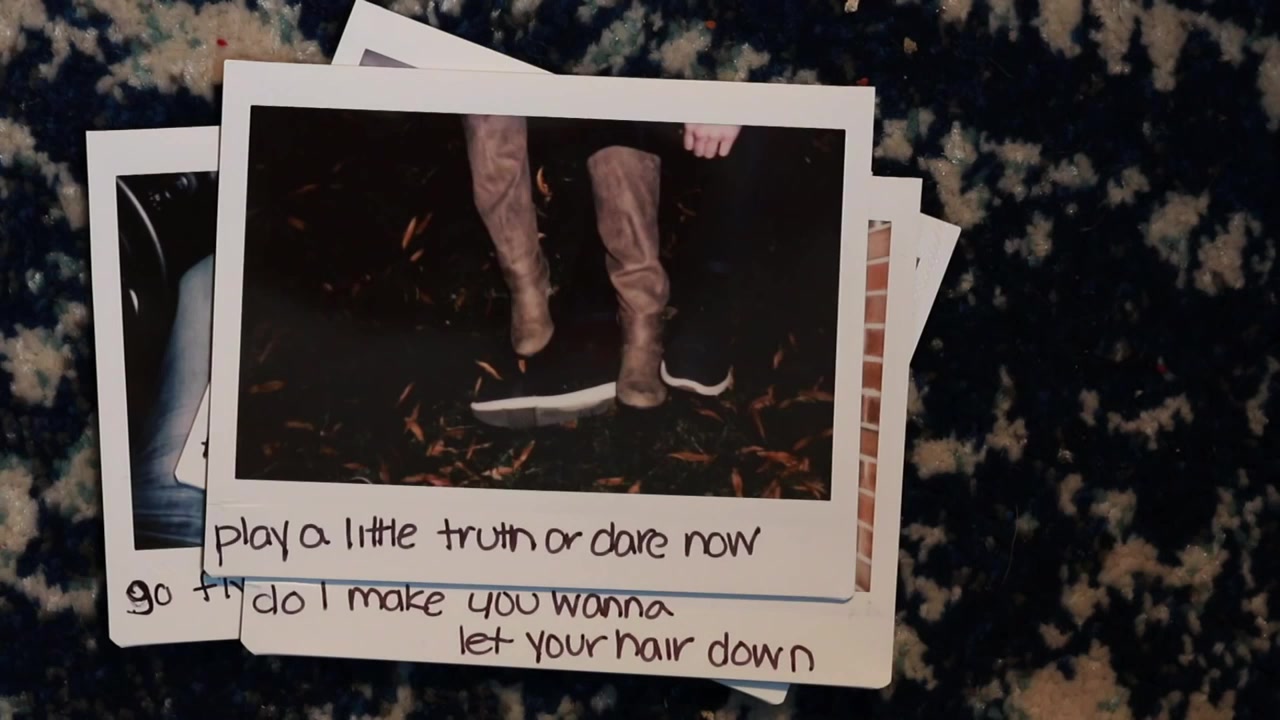 play a little truth or dare now
go fly
do I make you wanna
let your hair down